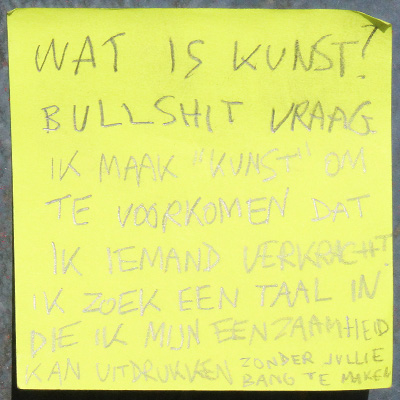 WAT IS KUNST?
BULLSHIT VRAAG
IK MAAK "KUNST" OM
TE VOORKOMEN DAT
IK IEMAND VERKRACHT.
IK ZOEK EEN TAAL IN
DIE IK MIJN EENZAAMHEID
KAN UITDRUKKEN ZONDER JULLIE
BANG TE MAKEN